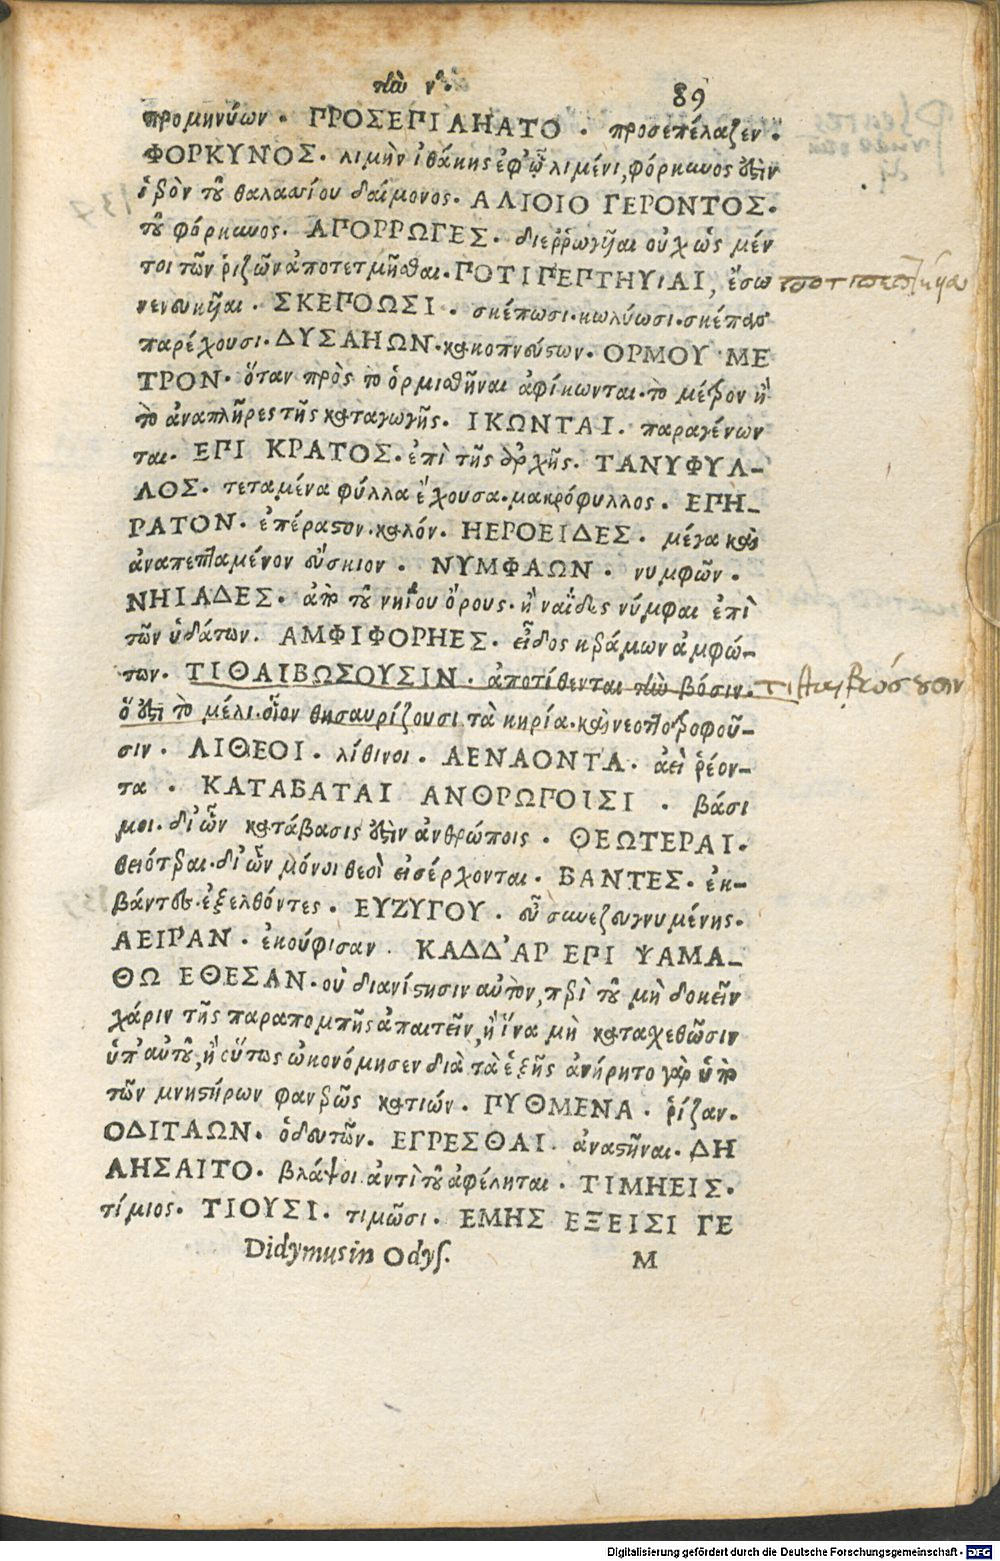 εἰς τὴν ν. 89
προμηνύων. ΠΡΟΣΕΠΙΛΗΑΤΟ. προσεπέλαζεν.
ΦΟΡΚΥΝΟΣ. λιμὴν ἰθάκης ἐφ' ᾧ λιμένι, φόρκυνος ἐστὶν
ἱερὸν τοῦ θαλασσίου δαίμονος. ΑΛΙΟΙΟ ΓΕΡΟΝΤΟΣ.
τοῦ φόρκυνος. ΑΠΟΡΡΩΓΕΣ. διερρωγῆαι οὐχ ὡς μέν
τοι τῶν ῥιζῶν ἀποτετμῆσθαι. ΠΟΤΙΠΕΠΤΗΥΙΑΙ, ἔσω
νενευκῆαι. ΣΚΕΠΟΩΣΙ. σκέπωσι. κωλύωσι. σκέπας
παρέχουσι. ΔΥΣΑΗΩΝ. κακοπνεύστων. ΟΡΜΟΥ ΜΕ
ΤΡΟΝ. ὅταν πρὸς τὸ ὁρμισθῆναι ἀφίκωνται. τὸ μέτρον ἢ
τὸ ἀναπλῆρες τῆς καταγωγῆς. ΙΚΩΝΤΑΙ. παραγένων
ται. ΕΠΙ ΚΡΑΤΟΣ. ἐπὶ τῆς ἀρχῆς. ΤΑΝΥΦΥΛ-
ΛΟΣ. τεταμένα φύλλα ἔχουσα. μακρόφυλλος. ΕΠΗ-
ΡΑΤΟΝ. ἐπέραστον. καλόν. ΗΕΡΟΕΙΔΕΣ. μέγα καὶ
ἀναπεπταμένον εὔσκιον. ΝΥΜΦΑΩΝ. νυμφῶν.
ΝΗΙΑΔΕΣ. ἀπὸ τοῦ νηίου ὄρους. ἢ ναΐδες νύμφαι ἐπὶ
τῶν ὑδάτων. ΑΜΦΙΦΟΡΗΕΣ. εἶδος κεράμων ἀμφώ-
των. ΤΙΘΑΙΒΩΣΟΥΣΙΝ. ἀποτίθενται τὴν βόσιν.
ὅ ἐστι τὸ μέλι. οἷον θησαυρίζουσι τὰ κηρία. καὶ νεοττοτροφοῦ-
σιν. ΛΙΘΕΟΙ. λίθινοι. ΑΕΝΑΟΝΤΑ. ἀεὶ ῥέον-
τα. ΚΑΤΑΒΑΤΑΙ ΑΝΘΡΩΠΟΙΣΙ. βάσι
μοι. δι' ὧν κατάβασις ἐστὶν ἀνθρώποις. ΘΕΩΤΕΡΑΙ.
θειότεραι. δι' ὧν μόνοι θεοὶ εἰσέρχονται. ΒΑΝΤΕΣ. ἐκ-
βάντες. ἐξελθόντες. ΕΥΖΥΓΟΥ. εὖ συνεζευγνυμένης.
ΑΕΙΡΑΝ. ἐκούφισαν. ΚΑΔΔ' ΑΡ ΕΠΙ ΨΑΜΑ-
ΘΩ ΕΘΕΣΑΝ. οὐ διανίστησιν αὐτὸν, περὶ τοῦ μὴ δοκεῖν
χάριν τῆς παραπομπῆς ἀπαιτεῖν, ἢ ἵνα μὴ κατασχεθῶσιν
ὑπ' αὐτοῦ, ἢ οὕτως ὠκονόμησεν διὰ τὰ ἑξῆς ἀνήρητο γὰρ ὑπὸ
τῶν μνηστήρων φανερῶς κατιών. ΠΥΘΜΕΝΑ. ῥίζαν.
ΟΔΙΤΑΩΝ. ὁδευτῶν. ΕΓΡΕΣΘΑΙ. ἀναστῆναι. ΔΗ
ΛΗΣΑΙΤΟ. βλάψοι ἀντὶ τοῦ ἀφέληται. ΤΙΜΗΕΙΣ.
τίμιος. ΤΙΟΥΣΙ. τιμῶσι. ΕΜΗΣ ΕΞΕΙΣΙ ΓΕ
Didymus in Odys. M
ποτιπεπτηῦα
τιθαιβώσουσιν
Digitalisierung gefördert durch die Deutsche Forschungsgemeinschaft - DFG